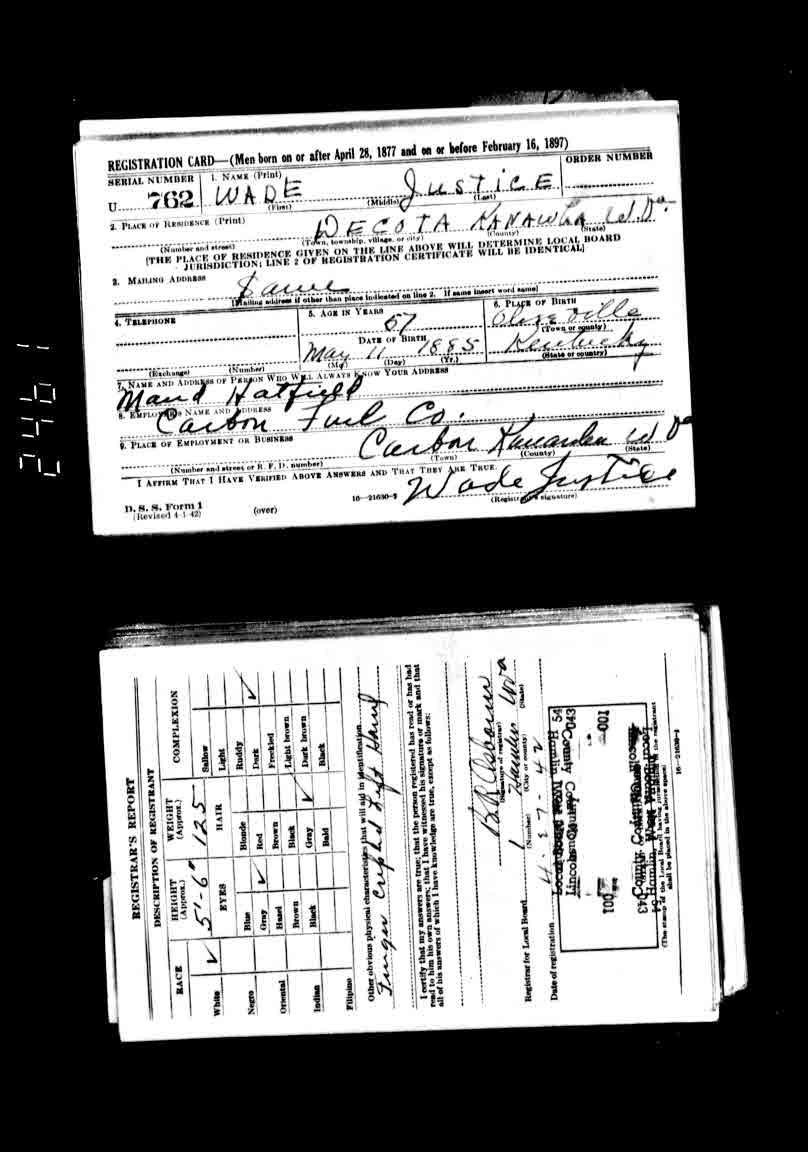 REGISTRATION CARD—(Men born on or after April 28, 1877 and on or before February 16, 1897)
SERIAL NUMBER
1. NAME (Print)
ORDER NUMBER
U 762
WADE JUSTICE
(First) (Middle) (Last)
2. PLACE OF RESIDENCE (Print)
DECOTA KANAWHA W. Va.
(Number and street) (Town, township, village, or city) (County) (State)
[THE PLACE OF RESIDENCE GIVEN ON THE LINE ABOVE WILL DETERMINE LOCAL BOARD
JURISDICTION; LINE 2 OF REGISTRATION CERTIFICATE WILL BE IDENTICAL]
3. MAILING ADDRESS
Same
[Mailing address if other than place indicated on line 2. If same insert word same]
4. TELEPHONE
5. AGE IN YEARS
57
6. PLACE OF BIRTH
Olive ville
(Town or county)
DATE OF BIRTH
May 11 1885
(Mo.) (Day) (Yr.)
Kentucky
(State or country)
(Exchange) (Number)
7. NAME AND ADDRESS OF PERSON WHO WILL ALWAYS KNOW YOUR ADDRESS
Maud Hatfield
8. EMPLOYER'S NAME AND ADDRESS
Carbon Fuel Co.
9. PLACE OF EMPLOYMENT OR BUSINESS
Carbon Kanawha W Va
(Number and street or R. F. D. number) (Town) (County) (State)
I AFFIRM THAT I HAVE VERIFIED ABOVE ANSWERS AND THAT THEY ARE TRUE.
Wade Justice
D. S. S. Form 1
(Revised 4-1-42) (over) 16—21630-2 (Registrant's signature)
2461
REGISTRAR'S REPORT
DESCRIPTION OF REGISTRANT
RACE
HEIGHT (Approx.)
WEIGHT (Approx.)
COMPLEXION
5'-6"
125
EYES
HAIR
White ✓
Negro
Oriental
Indian
Filipino
Blue
Gray ✓
Hazel
Brown
Black
Blonde
Red
Brown
Black
Gray ✓
Bald
Sallow
Light
Ruddy
Dark ✓
Freckled
Light brown
Dark brown
Black
Other obvious physical characteristics that will aid in identification
Finger Left Hand
I certify that my answers are true; that the person registered has read or has had
read to him his own answers; that I have witnessed his signature or mark and that
all of his answers of which I have knowledge are true, except as follows:
B R Osborn
(Signature of registrar)
Registrar for Local Board 1
(Number) (City or county) (State)
Date of registration 4-27-42
Local Board No. 1 54
Lincoln County 043
Hamlin, West 001
(The stamp of the Local Board having jurisdiction of the registrant
shall be placed in the above space)
16—21630-1